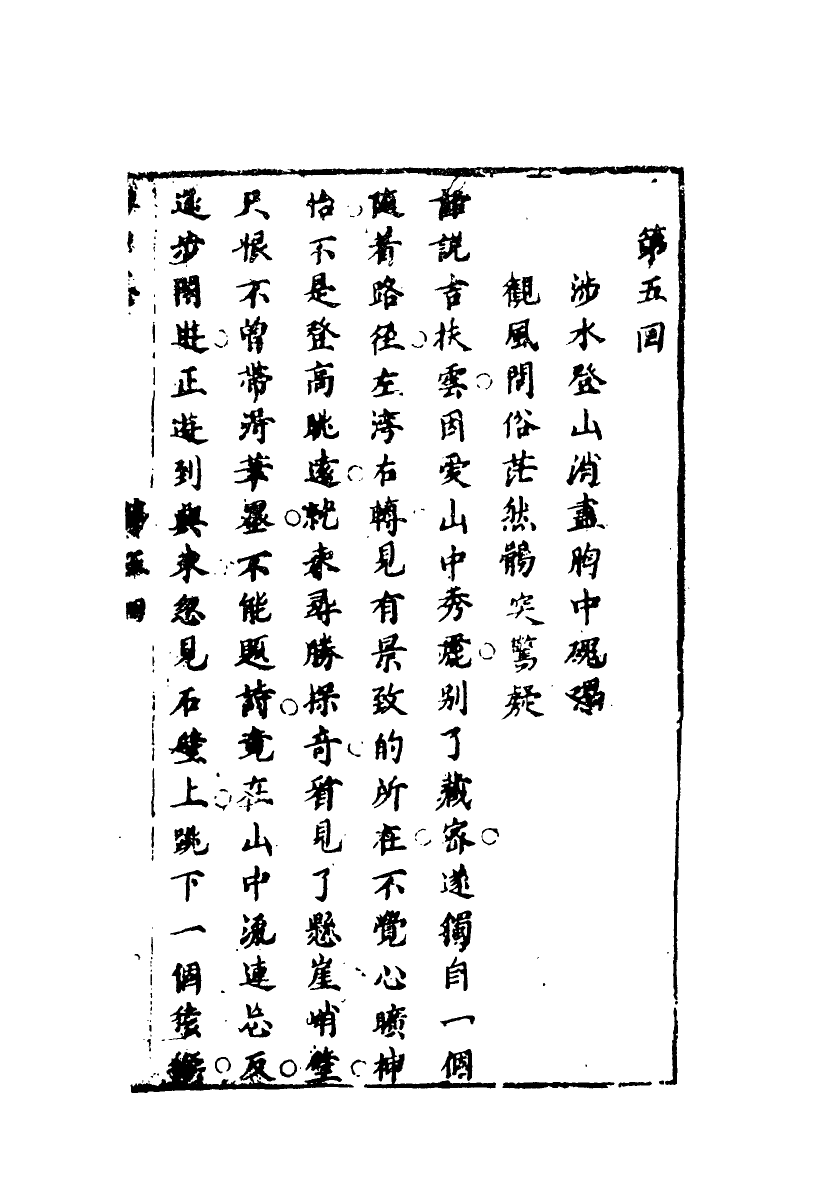 第五回
涉水登山消盡胸中磈磊
觀風問俗茫然鶻突驚疑
話說吉扶雲因愛山中秀麗別了藏密遂獨自一個
隨着路徑左灣右轉見有景致的所在不覺心曠神
怡不是登高眺遠就來尋勝探奇看見了懸崖峭壁
只恨不曾帶淂筆墨不能題詩竟在山中流連忘反
逐步閑遊正遊到興來忽見石壁上跳下一個猿
第五回